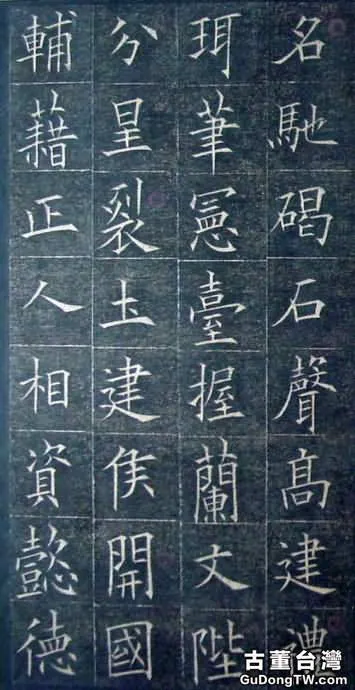 名馳碣石聲髙建禮
珥筆憲臺握蘭文陛
分星裂圡建侯開國
輔藉正人相資懿德
古董台灣
GuDongTW.com